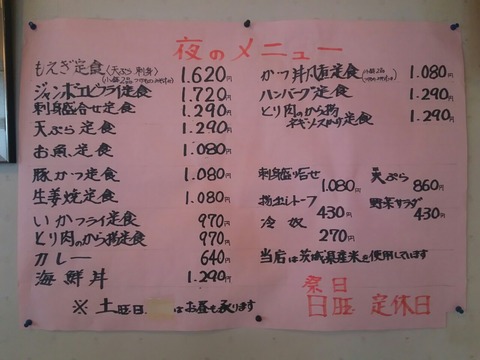 夜のメニュー
もえぎ定食(天ぷら 刺身) 1.620円
ジャンボエビフライ定食 1.720円
刺身盛合せ定食 1.290円
天ぷら定食 1.290円
お魚定食 1.080円
豚かつ定食 1.080円
生姜焼定食 1.080円
いかフライ定食 970円
とり肉のから揚定食 970円
カレー 640円
海鮮丼 1.290円
※ 土曜日 はお昼も承ります
かつ丼 定食 1.080円
ハンバーグ定食 1.290円
とり肉のから揚
ネギソースかけ定食 1.290円
刺身盛り合せ 1.080円
揚出しトーフ 430円
冷奴 270円
天ぷら 860円
野菜サラダ 430円
当店は茨城県産米を使用しています
祭日
日曜 定休日